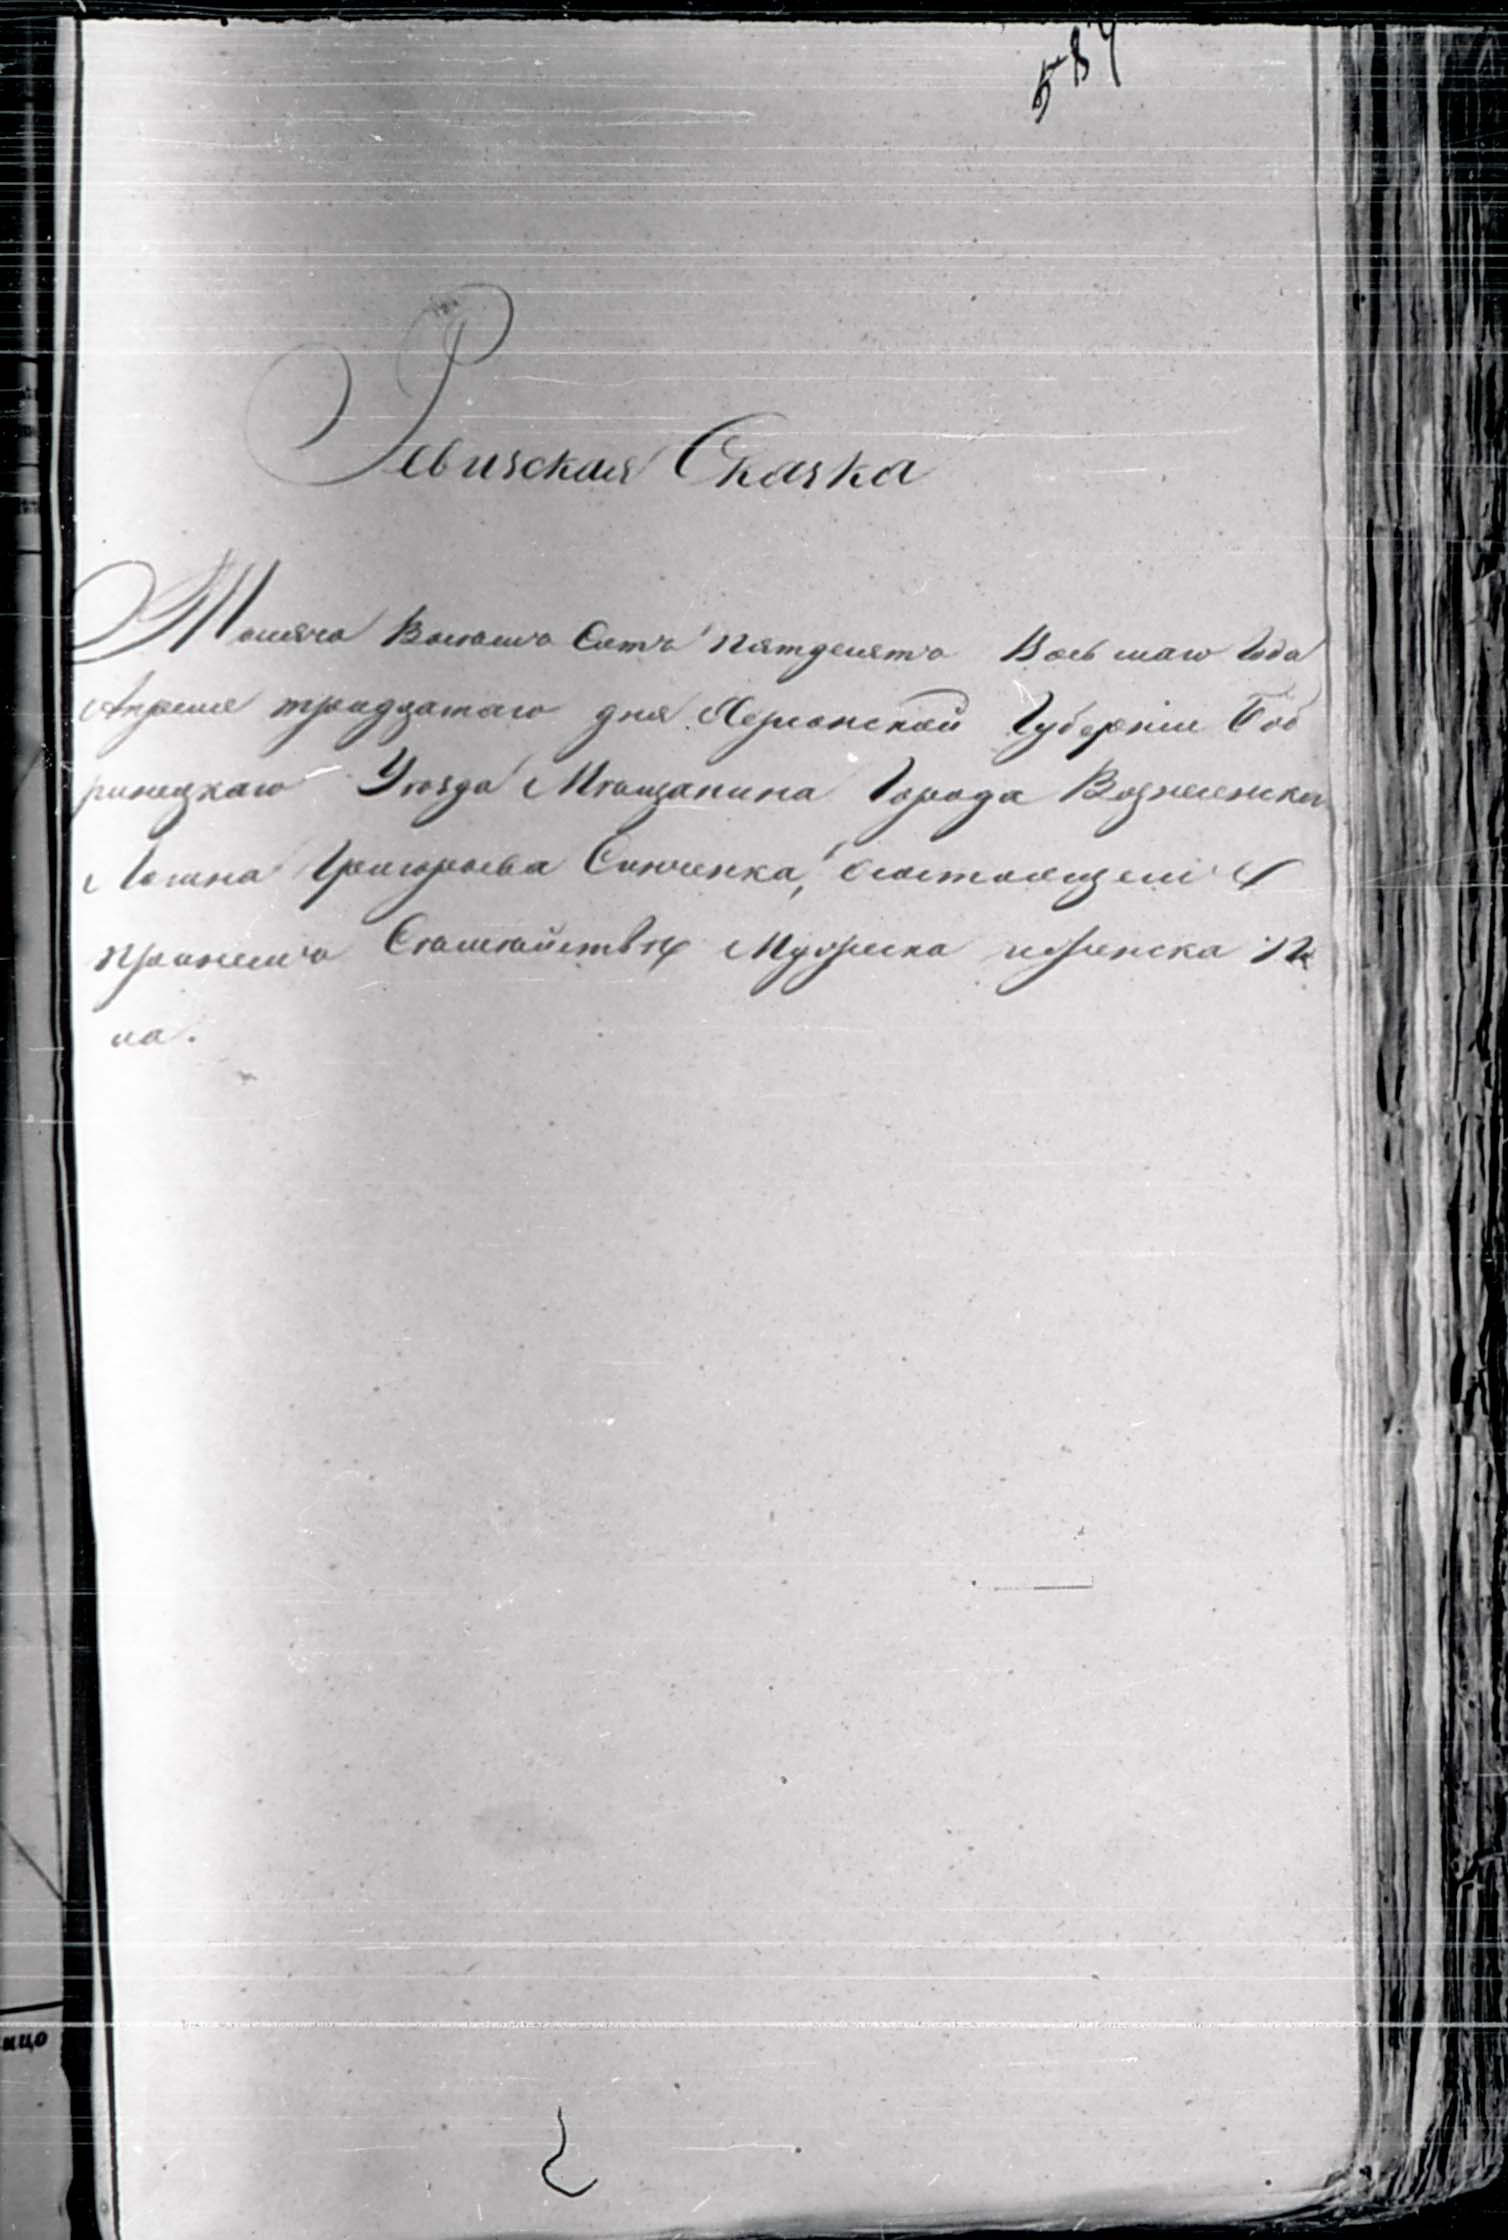 584
Ревизская Сказка
Тысяча Восемь Сотъ пятдесятъ Восьмаго Года
Апреля тридцатаго дня Херсонской Губерніи Боб
ринецкаго Уезда Мещанина Города Вознесенска
Григорьева Синченка, о состоящемъ
при немъ Семействе Мужеска и женска По
ла.
ицо